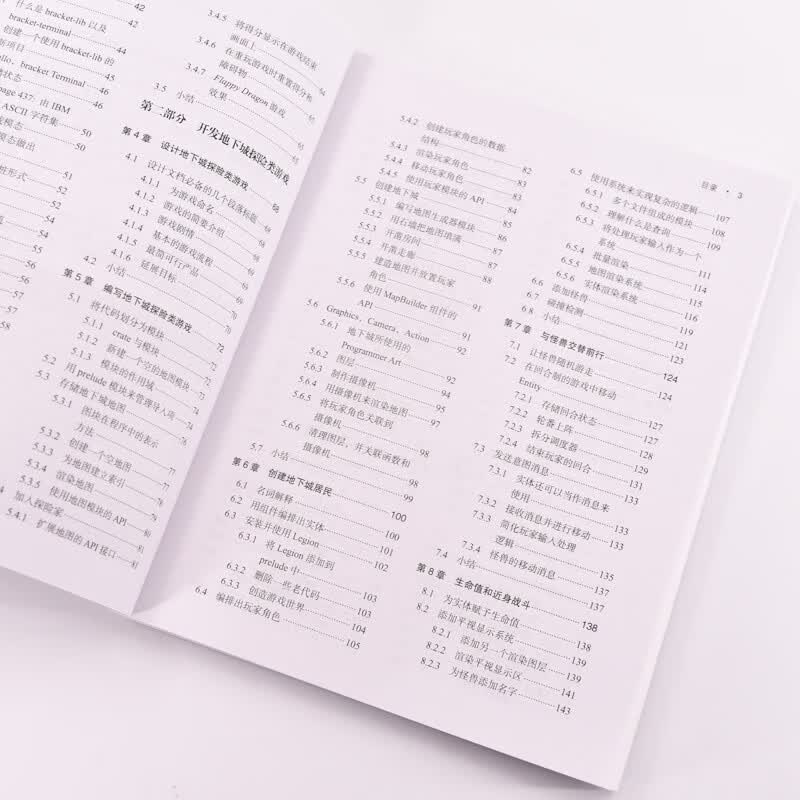 什么是 bracket-lib 以及
bracket-terminal 42
创建一个使用 bracket-lib 的
新项目 44
Hello，bracket Terminal 45
46
page 437：由 IBM
ASCII 字符集 50
模态 50
模态做出 51
52
52
54
54
55
56
56
57
58
3.4.5 将得分显示在游戏结束
画面上
3.4.6 在重玩游戏时重置得分和
障碍物
3.4.7 Flappy Dragon 游戏
效果
3.5 小结
第二部分 开发地下城探险类游戏
第 4 章 设计地下城探险类游戏 68
4.1 设计文档必备的几个段落标题 68
4.1.1 为游戏命名 68
4.1.2 游戏的简要介绍 68
4.1.3 游戏剧情 69
4.1.4 基本的游戏流程 69
4.1.5 最简可行产品 69
4.1.6 延展目标 70
4.2 小结 70
第 5 章 编写地下城探险类游戏 72
5.1 将代码划分为模块 72
5.1.1 crate 与模块 73
5.1.2 新建一个空的地图模块 73
5.1.3 模块的作用域 74
5.2 用 prelude 模块来管理导入项 74
5.3 存储地下城地图 76
5.3.1 图块在程序中的表示
方法 77
5.3.2 创建一个空地图 77
5.3.3 为地图建立索引 77
5.3.4 渲染地图 79
5.3.5 使用地图模块的 API 80
5.4 加入探险家 81
5.4.1 扩展地图的 API 接口 81
目录 · 3
5.4.2 创建玩家角色的数据
结构 82
5.4.3 渲染玩家角色 83
5.4.4 移动玩家角色 83
5.4.5 使用玩家模块的 API 84
5.5 创建地下城 85
5.5.1 编写地图生成器模块 86
5.5.2 用石墙把地图填满 87
5.5.3 开凿房间 87
5.5.4 开凿走廊 88
5.5.5 建造地图并放置玩家
角色 91
5.5.6 使用 MapBuilder 组件的
API 91
5.6 Graphics，Camera，Action 92
5.6.1 地下城所使用的
Programmer Art 92
5.6.2 图层 94
5.6.3 制作摄像机 94
5.6.4 用摄像机来渲染地图 97
5.6.5 将玩家角色关联到
摄像机 98
5.6.6 清理图层，并关联函数和
摄像机 98
5.7 小结 99
第 6 章 创建地下城居民 100
6.1 名词解释 100
6.2 用组件编排出实体 101
6.3 安装并使用 Legion 102
6.3.1 将 Legion 添加到
prelude 中 103
6.3.2 删除一些老代码 103
6.3.3 创造游戏世界 104
6.4 编排出玩家角色 105
6.5 使用系统来实现复杂的逻辑 107
6.5.1 多个文件组成的模块 108
6.5.2 理解什么是查询 109
6.5.3 将处理玩家输入作为一个
系统 111
6.5.4 批量渲染 114
6.5.5 地图渲染系统 115
6.5.6 实体渲染系统 116
6.6 添加怪兽 119
6.7 碰撞检测 121
6.8 小结 123
第 7 章 与怪兽交替前行 124
7.1 让怪兽随机游走 124
7.2 在回合制的游戏中移动
Entity 127
7.2.1 存储回合状态 127
7.2.2 轮番上阵 128
7.2.3 拆分调度器 129
7.2.4 结束玩家的回合 131
7.3 发送意图消息 131
7.3.1 实体还可以当作消息来
使用 133
7.3.2 接收消息并进行移动 133
7.3.3 简化玩家输入处理
逻辑 135
7.3.4 怪兽的移动消息 137
7.4 小结 137
第 8 章 生命值和近身战斗 138
8.1 为实体赋予生命值 138
8.2 添加平视显示系统 139
8.2.1 添加另一个渲染图层 139
8.2.2 渲染平视显示区 141
8.2.3 为怪兽添加名字 143